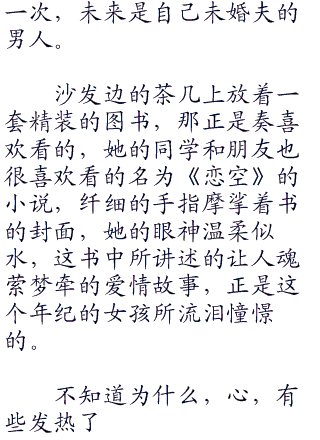 一次，未来是自己未婚夫的
男人。
沙发边的茶几上放着一
套精装的图书，那正是奏喜
欢看的，她的同学和朋友也
很喜欢看的名为《恋空》的
小说，纤细的手指摩挲着书
的封面，她的眼神温柔似
水，这书中所讲述的让人魂
萦梦牵的爱情故事，正是这
个年纪的女孩所流泪憧憬
的。
不知道为什么，心，有
些发热了